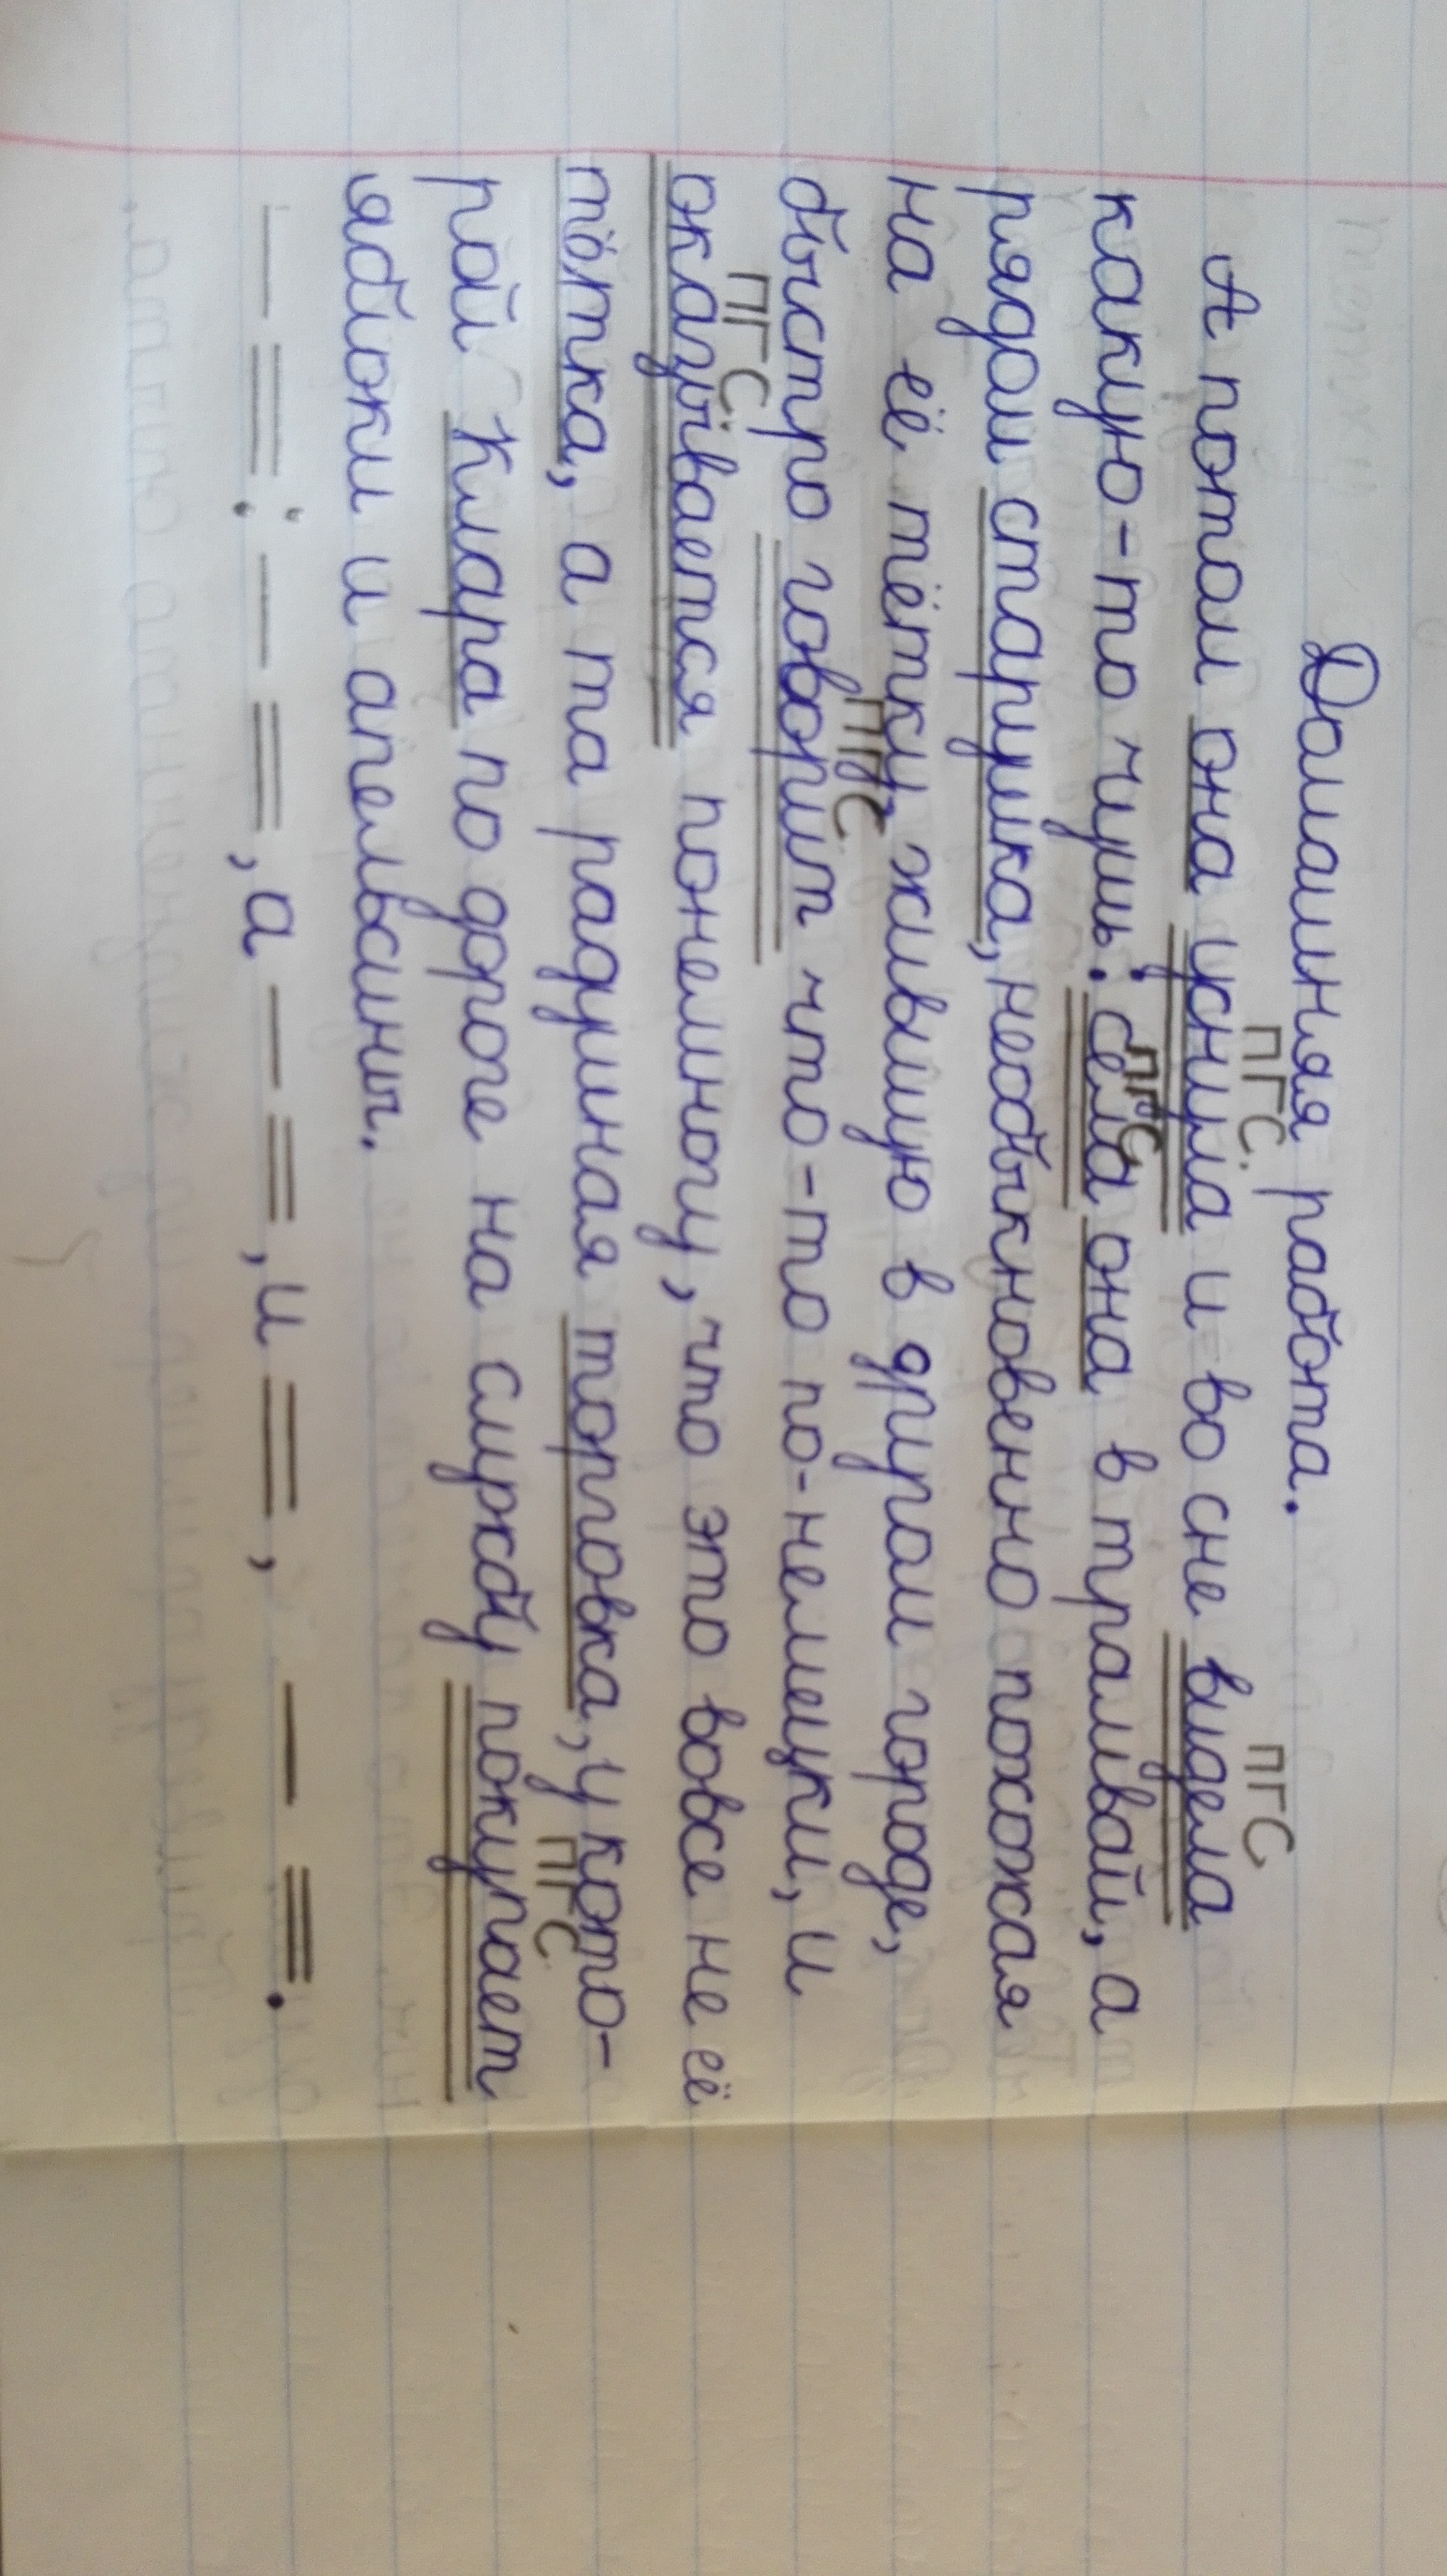 Домашняя работа.
ПГС. ПГС
А потом она уснула и во сне видела
какую-то чушь: села она в трамвай, а
ПГС
рядом старушка, необыкновенно похожая
на её тётку, жившую в другом городе,
ПГС.
быстро говорит что-то по-немецки, и
ПГС.
оказывается понемногу, что это вовсе не её
тётка, а та радушная торговка, у кото-
ПГС.
рой Клара по дороге на службу покупает
яблоки и апельсины.
— =: — =, а — =, и =, — =.